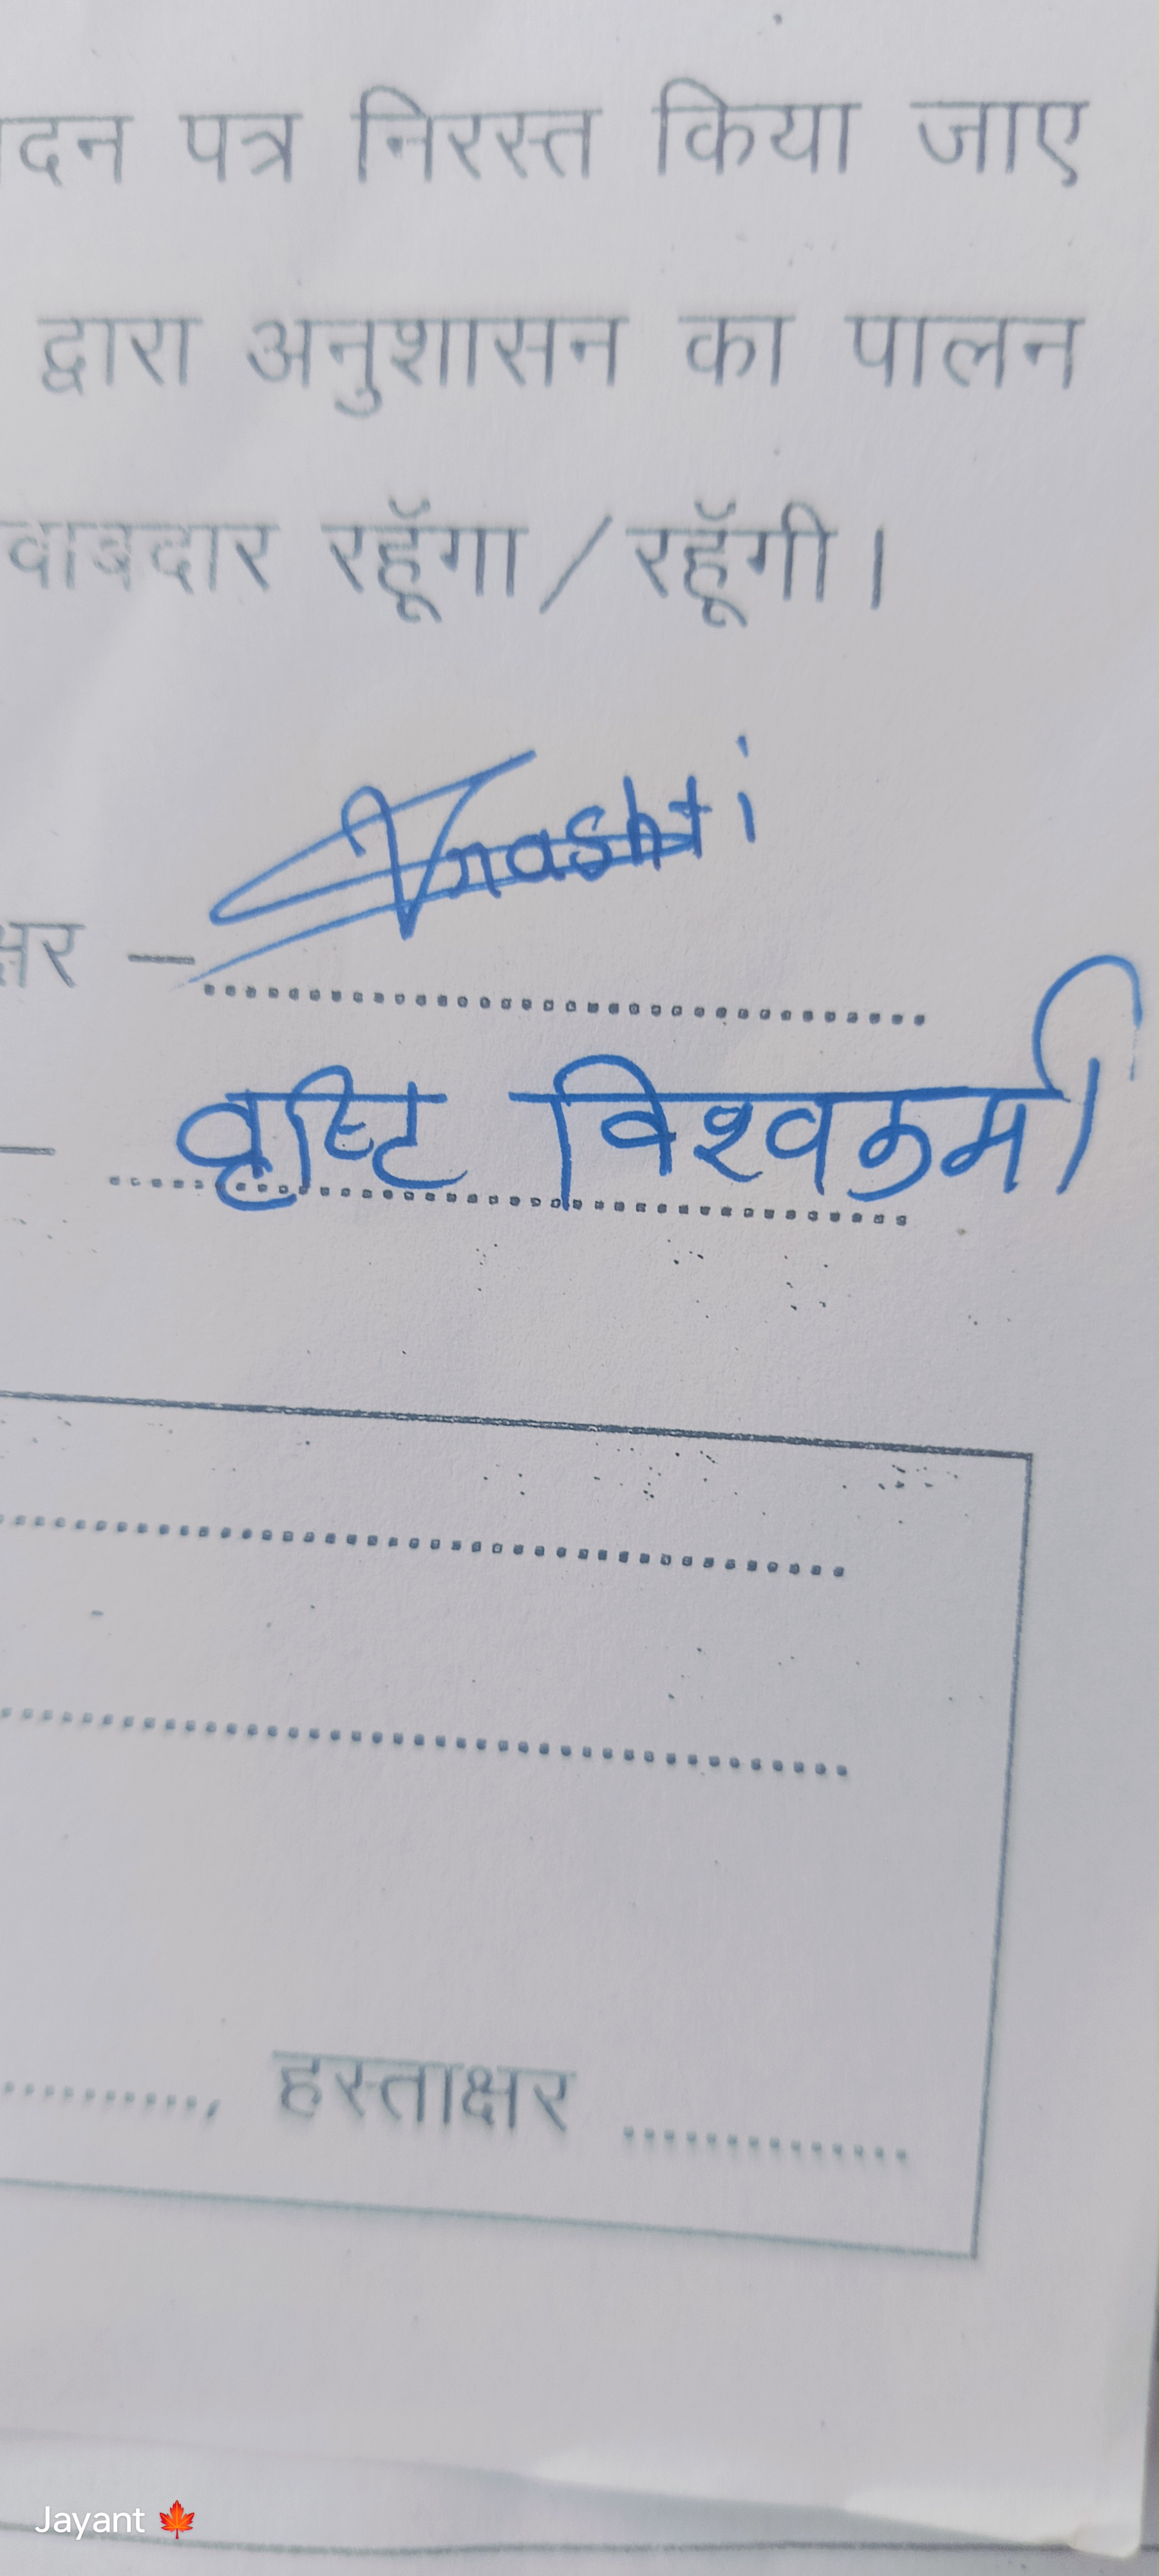 दन पत्र निरस्त किया जाए
द्वारा अनुशासन का पालन
वाबदार रहूँगा / रहूँगी।
क्षर –
वृष्टि विश्वकर्मा
हस्ताक्षर
Jayant 🍁